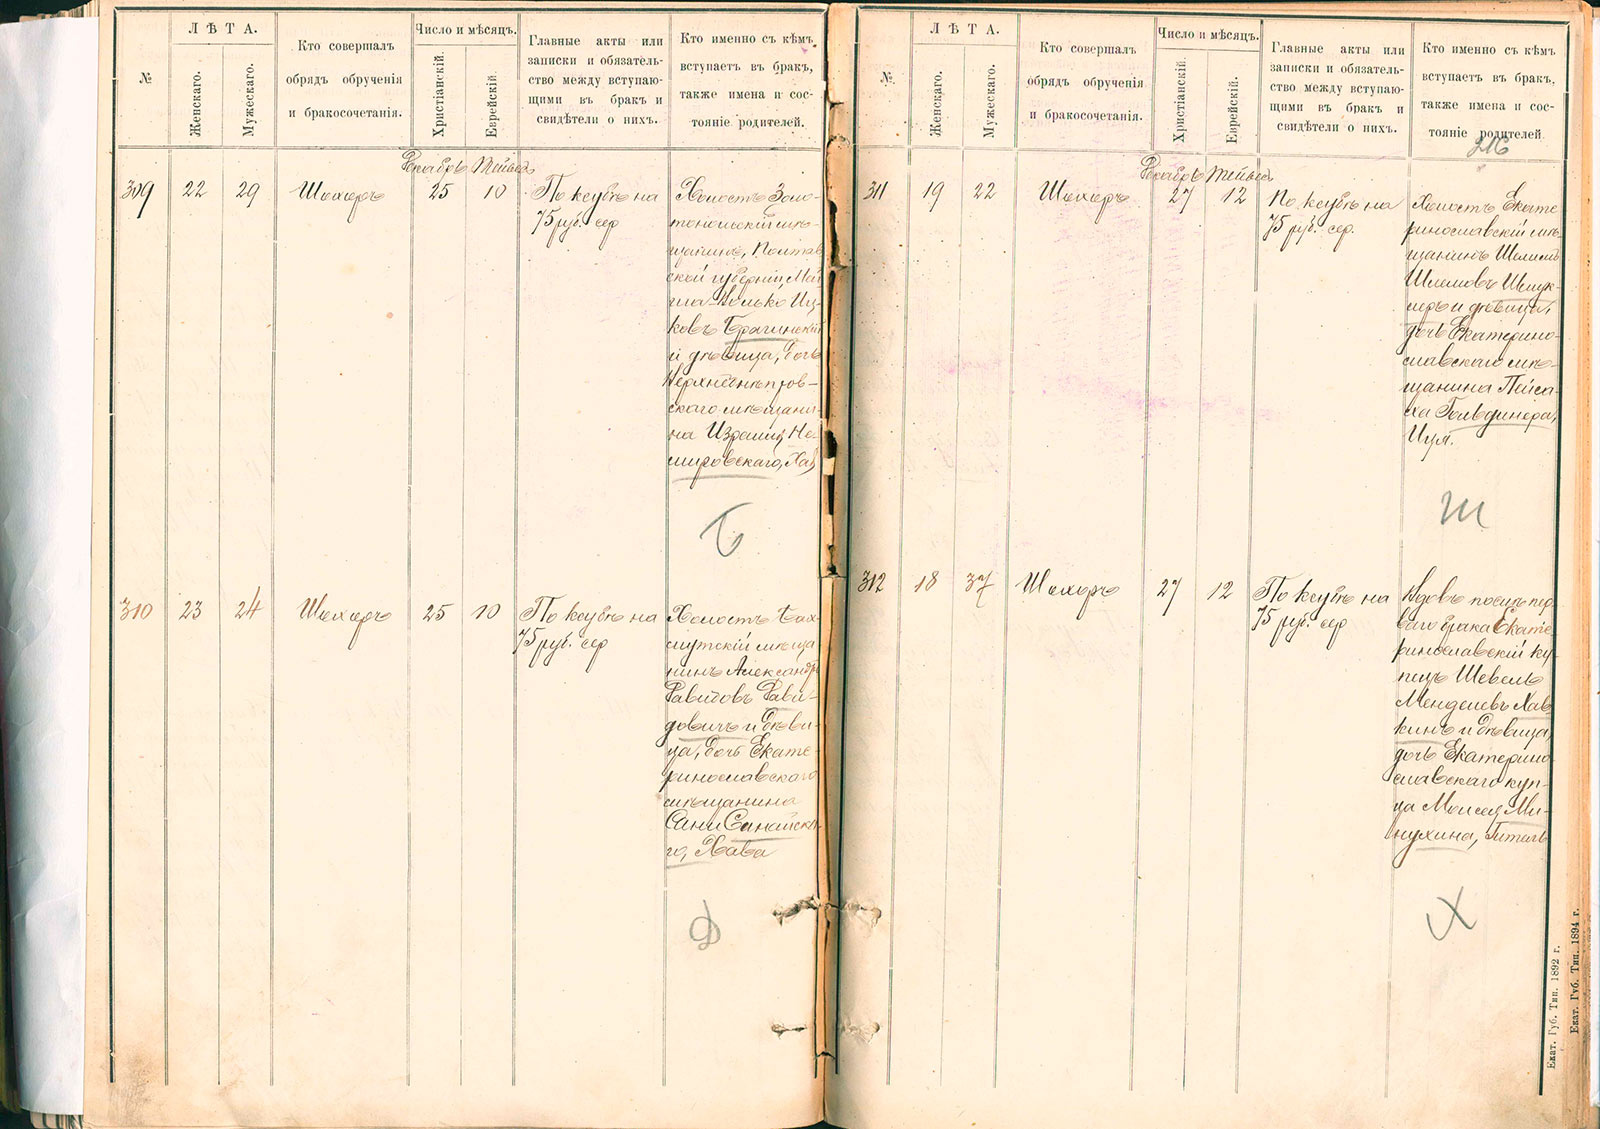 №
ЛѢТА.
Женскаго.
Мужескаго.
Кто совершалъ
обрядъ обрученія
и бракосочетанія.
Число и мѣсяцъ.
Христіанскій.
Еврейскій.
Главные акты или
записки и обязатель-
ство между вступаю-
щими въ бракъ и
свидѣтели о нихъ.
Кто именно съ кѣмъ
вступаетъ въ бракъ,
также имена и сос-
тояніе родителей.
Декабрь Тейвесъ
309 22 29 Шохоръ 25 10
По ксубѣ на
75 руб. сер
Холостъ Золо-
тоношскій мѣ-
щанинъ, Полтав
ской губерніи, Мей
Волько Иц-
ковъ Брагинскій
и дѣвица, дочь
Верхнеднѣпров-
скаго мѣщани-
на Израиля Не-
мировскаго, Хая
Б
310 23 24 Шохоръ 25 10
По ксубѣ на
75 руб. сер
Холостъ Бах-
мутскій мѣща
нинъ Александръ
Давидовъ Дави-
довичъ и дѣви-
ца, дочь Екате-
ринославскаго
мѣщанина
Санайска-
го, Хава
Д
№
ЛѢТА.
Женскаго.
Мужескаго.
Кто совершалъ
обрядъ обрученія
и бракосочетанія.
Число и мѣсяцъ.
Христіанскій.
Еврейскій.
Главные акты или
записки и обязатель-
ство между вступаю-
щими въ бракъ и
свидѣтели о нихъ.
Кто именно съ кѣмъ
вступаетъ въ бракъ,
также имена и сос-
тояніе родителей
216
Декабрь Тейвесъ
311 19 22 Шохоръ 27 12
По ксубѣ на
75 руб. сер.
Холостъ Екате
ринославскій мѣ-
щанинъ Шлиомъ
Шлемовъ Шмук-
леръ и дѣвица,
дочь Екатерино-
славскаго мѣ-
щанина Пейса-
ха Гольдинера,
Ш
312 18 37 Шохоръ 27 12
По ксубѣ на
75 руб. сер
Вдовъ послѣ пер
ваго брака Екате
ринославскій ку-
пецъ Шевель
Менделевъ Хав
кинъ и дѣвица,
дочь Екатерино
славскаго куп-
ца Моисея Ми-
нухина, Гиталь
Х
Екат. Губ. Тип. 1892 г.
Екат. Губ. Тип. 1894 г.